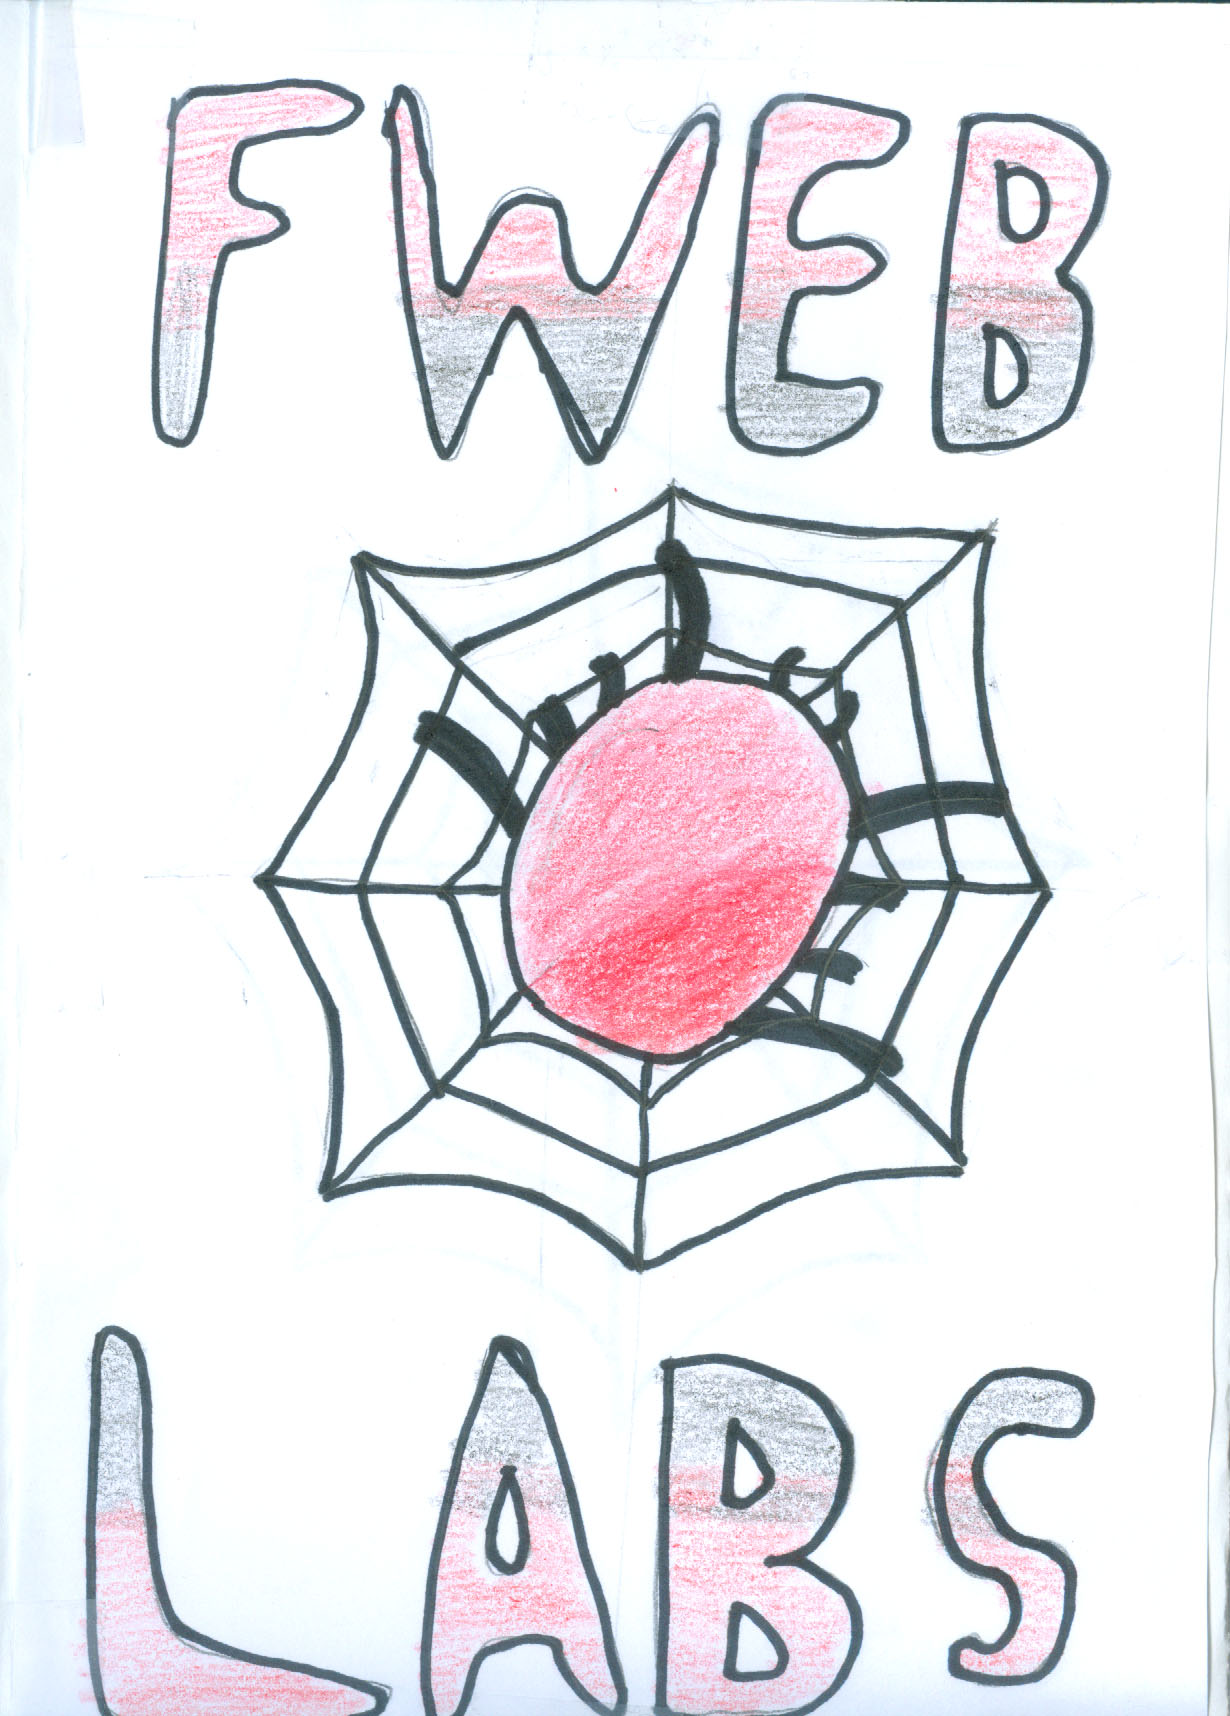 FWEB
LABS